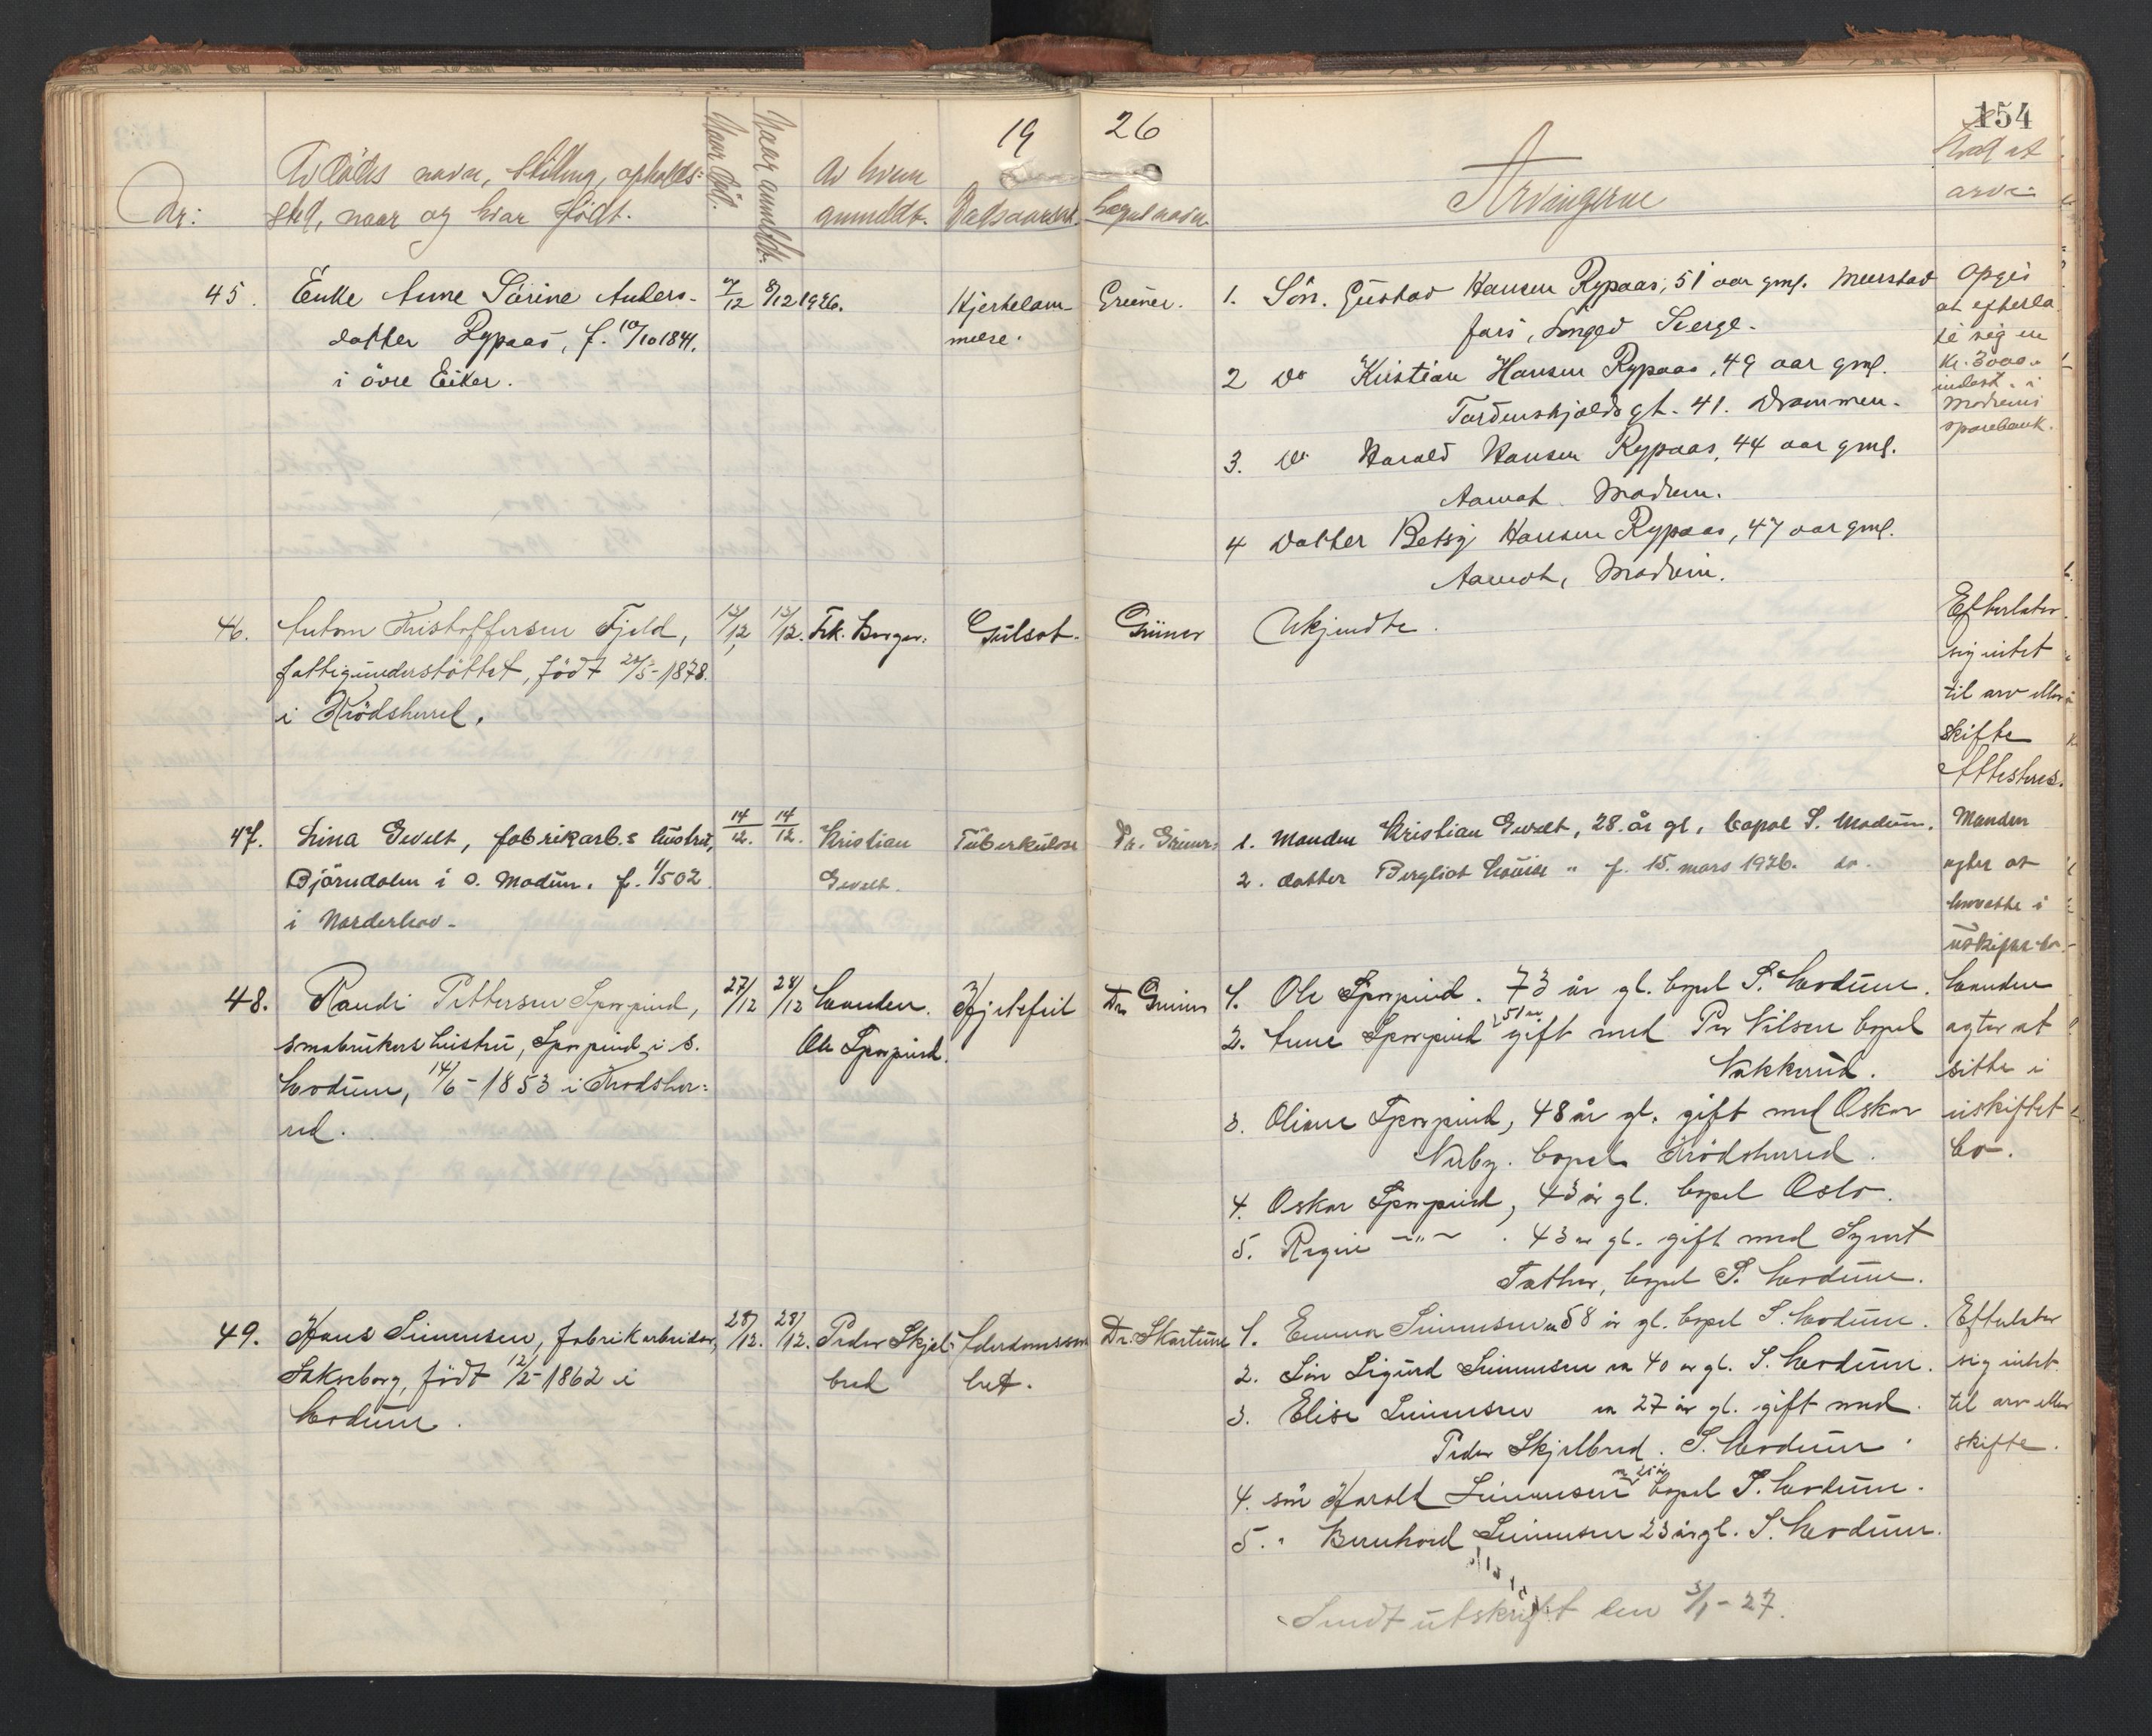 154
19 26
Nr:
Avdødes navn, stilling, opholds-
sted, naar og hvor født.
Naar død.
Naar anmeldt.
Av hvem
anmeldt.
Dødsaarsak.
Lægens navn
Arvingerne
Hvad at
arve:
45. Enke Anne Sörine Anders-
datter Rypaas, f. 10/10 1841.
i övre Eiker.
7/12 8/12 1926.
Hjertelam-
melse.
Grüner.
1. Sön. Gustav Hansen Rypaas, 51 aar gml.
Sverge.
2 Do Kristian Hansen Rypaas, 49 aar gml.
Tordenskjolds gt. 41. Drammen.
3. Do Harald Hansen Rypaas, 44 aar gml.
Aamot. Modum.
4 Datter Betsy Hansen Rypaas, 47 aar gml.
Aamot, Modum.
Opgis
at efterla
te sig en
kr. 3000.-
indest. i
Modums
sparebank.
46. Anton Kristoffersen Fjeld,
fattigunderstöttet, födt 1878.
i Krödsherred.
13/12 13/12. Frk. Borger. Gulsot. Grüner Ukjendte.
Efterlater
sig intet
til arv eller
skifte
Attesteres.
47. Lina Gevelt, fabrikarb.s hustru,
Björndalen i S. Modum. f. 1/5 02
i Norderhov.
14/12. 14/12. Kristian
Gevelt.
Tüberkülose
Dr. Grüner
1. Manden Kristian Gevelt, 28 år gl, bopæl S. Modum.
2. datter Bergliot Louise " f. 15. mars 1926. do.
Manden
agter at
hensette i
uskiftet bo.
48. Randi Pettersen Sporpind,
småbrukers hustru, Sporpind i S.
Modum, 14/6 - 1853 i Krødsher-
red.
27/12 28/12 Manden.
Ole Sporpind.
Hjertefeil
Dr. Grüner
1. Ole Sporpind. 73 år gl. bopel S. Modum.
2. Anne Sporpind 51 år gift med Per Nilsen bopel
Nakkerud.
3. Oline Sporpind, 48 år gl. gift med Oskar
Nerby. bopel Krødsherred.
4. Oskar Sporpind, 43 år gl. bopel Oslo.
5. Regine -"- . 43 år gl. gift med Syvert
bopel S. Modum.
Manden
agter at
sitte i
uskiftet
bo.
49. Hans Simensen, fabrikarbeider,
Saksborg, født 12/5 - 1862 i
Modum.
28/12. 28/12. Peder Skjel-
bred
Alderdomssvak-
het.
Dr. Skartum
1. Emma Simensen 58 år gl. bopel S. Modum.
2. Søn Sigurd Simensen 40 år gl. S. Modum.
3. Elise Simensen 27 år gl. gift med
Peder Skjelbred. S. Modum.
4. søn Harald Simensen 25 år bopel S. Modum.
5. " Bernhard Simensen 23 år gl. S. Modum.
Efterlater
sig intet
til arv eller
skifte.
Sendt utskrift den 3/1 - 27.